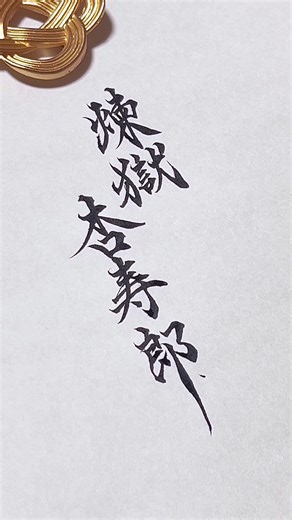 煉獄杏寿郎